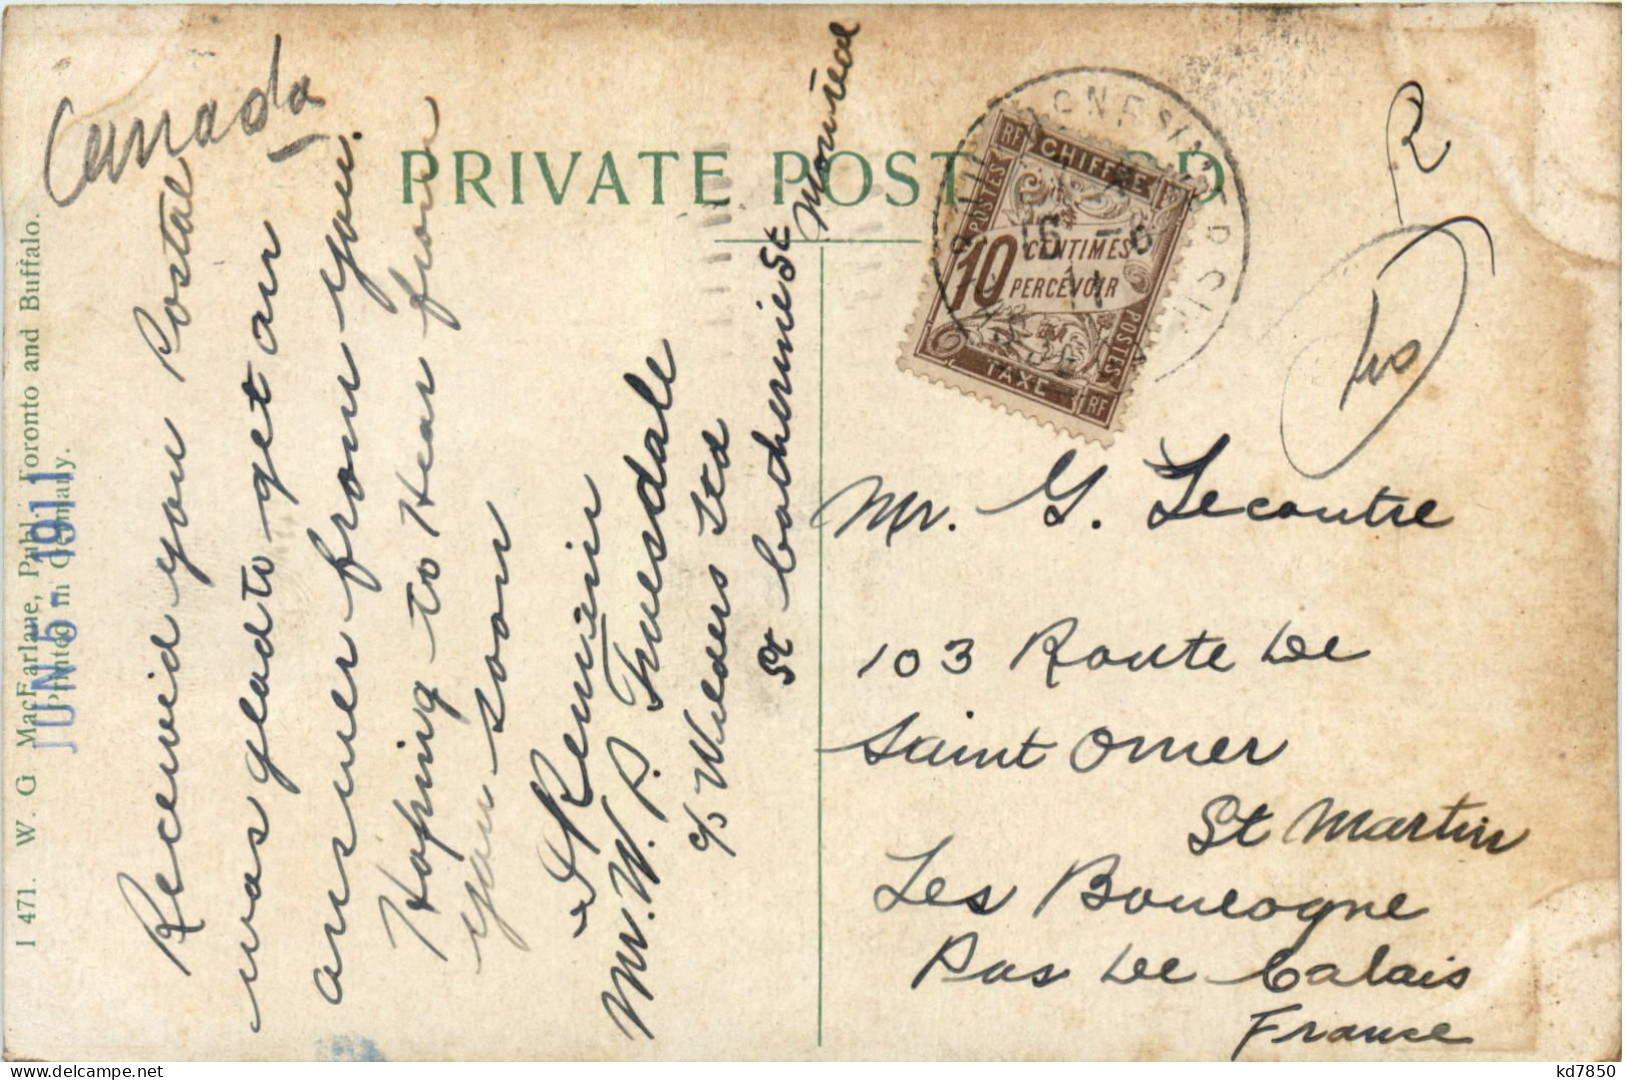 PRIVATE POST
Canada
Receivid you Postal
was glad to get an
answer from you.
Hoping to Hear from
you soon
I Remain
Mr. W. P. Truesdale
c/o Wilders Ltd
St Catherine St
Montreal
I 471. W. G. MacFarlane, Publ. Toronto and Buffalo.
Printed in Germany.
JUN 5 - 1911
RF CHIFFRE
POSTES
10 CENTIMES
PERCEVOIR
POSTES
TAXE RF
16 -6
11
R
Mr. G. Lecoutre
103 Route De
Saint Omer
St Martin
Les Boulogne
Pas De Calais
France
kd7850